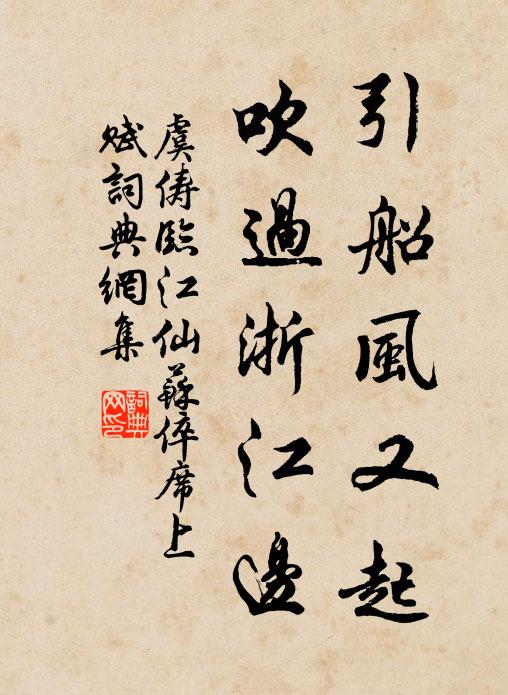 引船風又起
吹過浙江邊
虞儔臨江仙蘇倅席上
賦詞典網集
詞典
网印